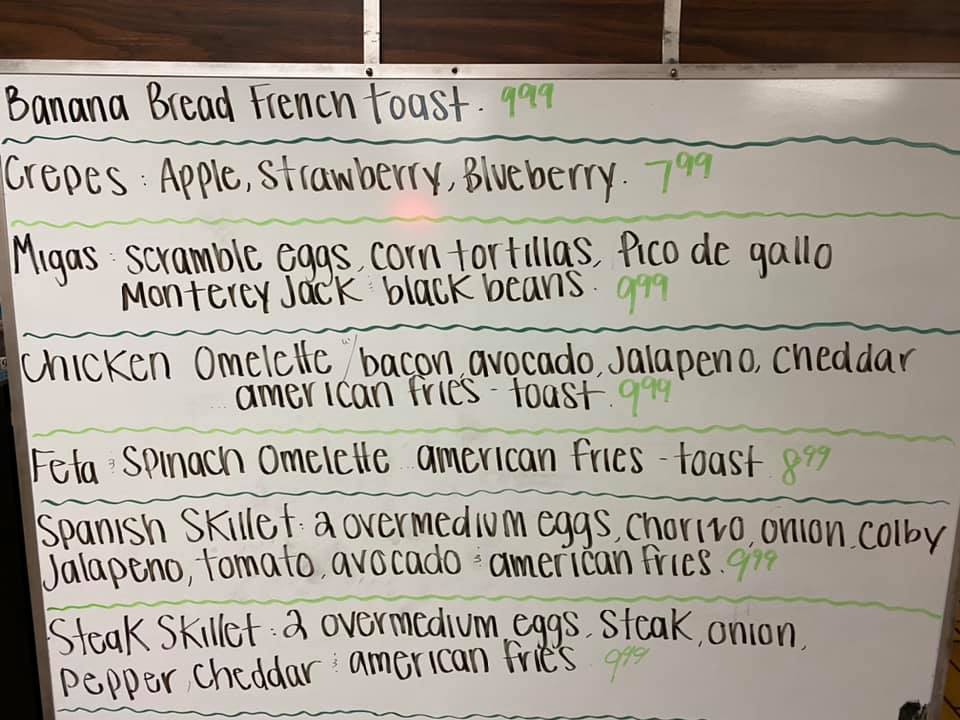 Banana Bread French toast. 999
Crepes: Apple, Strawberry, Blueberry. 799
Migas: scramble eggs, corn tortillas, Pico de gallo
Monterey Jack & black beans. 999
Chicken Omelette w/ bacon, avocado, Jalapeno, cheddar
american fries - toast. 999
Feta & Spinach Omelette american fries - toast 899
Spanish Skillet: 2 overmedium eggs, chorizo, onion, colby
Jalapeno, tomato, avocado & american fries. 999
Steak Skillet: 2 overmedium eggs, Steak, onion,
pepper, cheddar & american fries 999